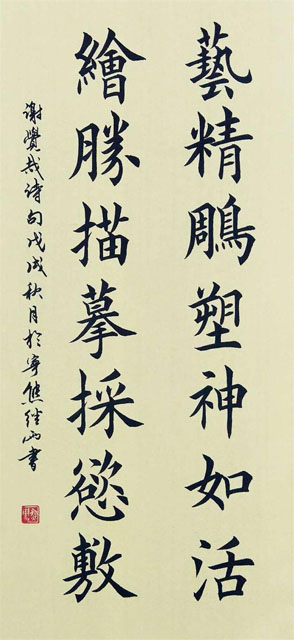 藝精鵰塑神如活
繪勝描摹採慾敷
謝覺哉詩句戊戌秋月於寧熊继山書